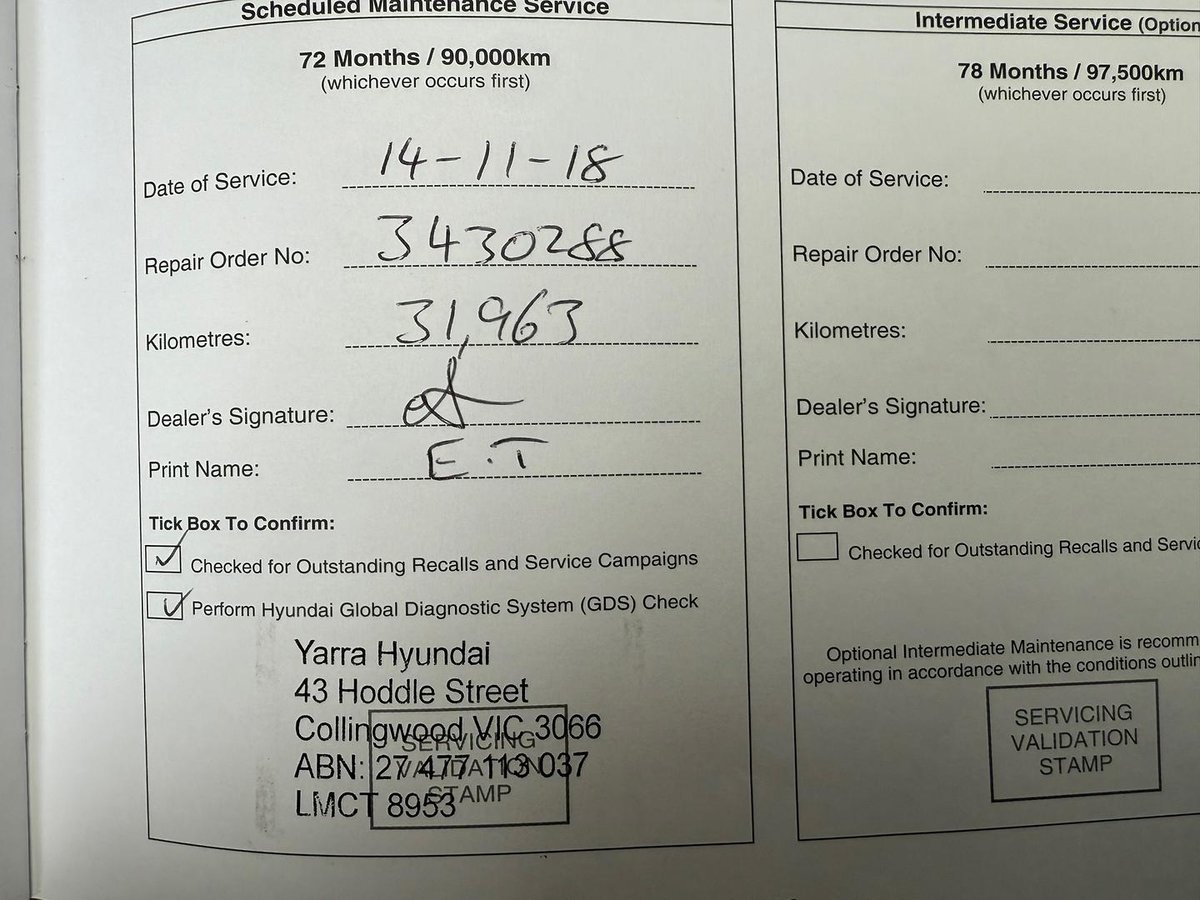 Scheduled Maintenance Service
72 Months / 90,000km
(whichever occurs first)
Date of Service: 14-11-18
Repair Order No: 3430288
Kilometres: 31,963
Dealer's Signature:
Print Name: E.T
Tick Box To Confirm:
Checked for Outstanding Recalls and Service Campaigns
Perform Hyundai Global Diagnostic System (GDS) Check
Yarra Hyundai
43 Hoddle Street
Collingwood VIC 3066
ABN: 27 477 113 037
LMCT 8953
SERVICING
VALIDATION
STAMP
Intermediate Service (Option
78 Months / 97,500km
(whichever occurs first)
Date of Service:
Repair Order No:
Kilometres:
Dealer's Signature:
Print Name:
Tick Box To Confirm:
Checked for Outstanding Recalls and Servic
Optional Intermediate Maintenance is recomm
operating in accordance with the conditions outlin
SERVICING
VALIDATION
STAMP